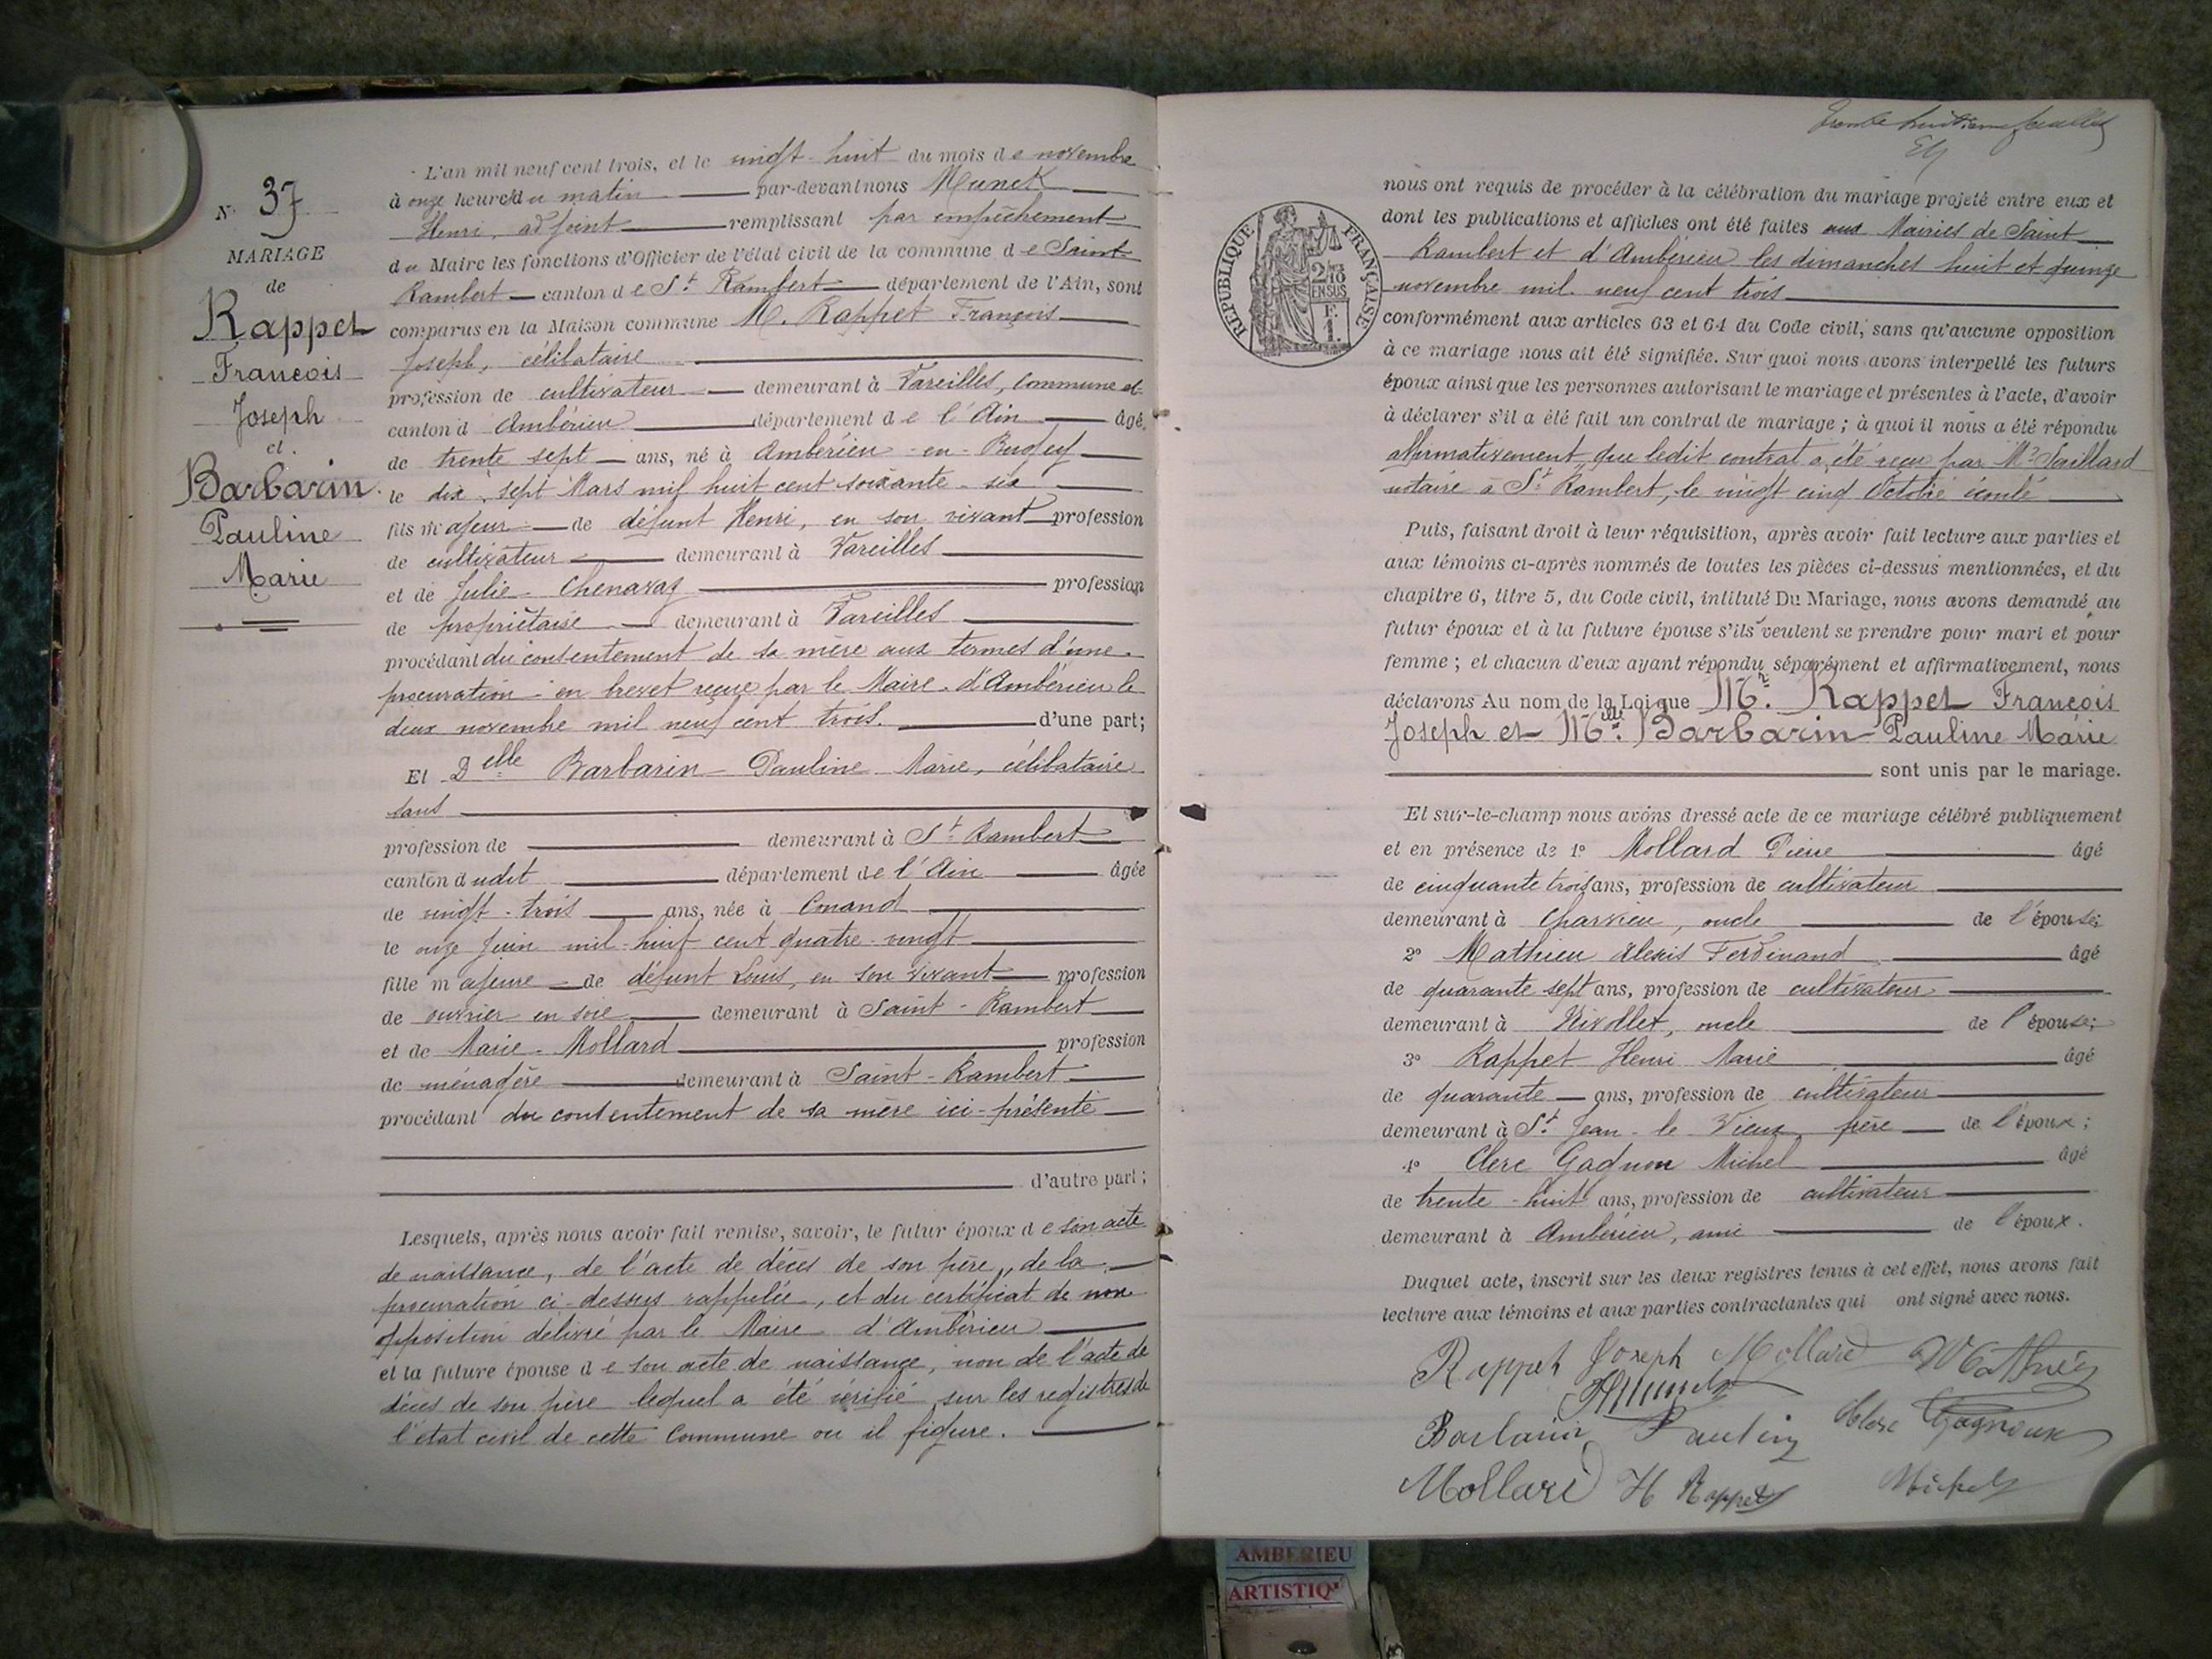 N° 37
MARIAGE
de
Rappet
François
Joseph
et.
Barbarin
Pauline
Marie
L'an mil neuf cent trois, et le vingt-huit du mois de novembre
à onze heures du matin par-devant nous Munck
Henri, adjoint remplissant par empêchement
du Maire les fonctions d'Officier de l'état civil de la commune de Saint
Rambert canton de St Rambert département de l'Ain, sont
comparus en la Maison commune M. Rappet François
Joseph, célibataire
profession de cultivateur demeurant à Vareilles, commune et
canton d'Ambérieu département de l'Ain âgé
de trente sept ans, né à Ambérieu-en-Bugey
le dix-sept Mars mil huit cent soixante-six
fils majeur de défunt Henri, en son vivant profession
de cultivateur demeurant à Vareilles
et de Julie Chenavaz profession
de propriétaire demeurant à Vareilles
procédant du consentement de sa mère aux termes d'une
procuration en brevet reçue par le Maire d'Ambérieu le
deux novembre mil neuf cent trois. d'une part;
Et Delle Barbarin Pauline Marie, célibataire
sans
profession de demeurant à St Rambert
canton dudit département de l'Ain âgée
de vingt-trois ans, née à Conand
le onze Juin mil-huit cent quatre-vingt
fille majeure de défunt Louis, en son vivant profession
de ouvrier en soie demeurant à Saint-Rambert
et de Marie Mollard profession
de ménagère demeurant à Saint-Rambert
procédant du consentement de sa mère ici-présente
d'autre part;
Lesquels, après nous avoir fait remise, savoir, le futur époux de son acte
de naissance, de l'acte de décès de son père, de la
procuration ci-dessus rappelée, et du certificat de non
opposition délivré par le Maire d'Ambérieu
et la future épouse de son acte de naissance, non de l'acte de
décès de son père lequel a été vérifié sur les registres de
l'état civil de cette Commune ou il figure.
Trente huitième feuillet
RÉPUBLIQUE FRANÇAISE
2/10
EN SUS
F.
1.
nous ont requis de procéder à la célébration du mariage projeté entre eux et
dont les publications et affiches ont été faites aux Mairies de Saint
Rambert et d'Ambérieu les dimanches huit et quinze
novembre mil neuf cent trois
conformément aux articles 63 et 64 du Code civil, sans qu'aucune opposition
à ce mariage nous ait été signifiée. Sur quoi nous avons interpellé les futurs
époux ainsi que les personnes autorisant le mariage et présentes à l'acte, d'avoir
à déclarer s'il a été fait un contrat de mariage; à quoi il nous a été répondu
affirmativement que ledit contrat a été reçu par Me Saillard
notaire à St Rambert, le vingt cinq Octobre écoulé
Puis, faisant droit à leur réquisition, après avoir fait lecture aux parties et
aux témoins ci-après nommés de toutes les pièces ci-dessus mentionnées, et du
chapitre 6, titre 5, du Code civil, intitulé Du Mariage, nous avons demandé au
futur époux et à la future épouse s'ils veulent se prendre pour mari et pour
femme; et chacun d'eux ayant répondu séparément et affirmativement, nous
déclarons Au nom de la Loi que Mr. Rappet François
Joseph et Melle Barbarin Pauline Marie
sont unis par le mariage.
Et sur-le-champ nous avons dressé acte de ce mariage célébré publiquement
et en présence de 1° Mollard Pierre âgé
de cinquante trois ans, profession de cultivateur
demeurant à Charvieu, oncle de l'épouse;
2° Mathieu Alexis Ferdinand âgé
de quarante sept ans, profession de cultivateur
demeurant à Nivollet, oncle de l'épouse;
3° Rappet Henri Marie âgé
de quarante ans, profession de cultivateur
demeurant à St Jean-le-Vieux, frère de l'époux;
4° Clerc Gagnon Michel âgé
de trente-huit ans, profession de cultivateur
demeurant à Ambérieu, ami de l'époux.
Duquel acte, inscrit sur les deux registres tenus à cet effet, nous avons fait
lecture aux témoins et aux parties contractantes qui ont signé avec nous.
Rappet Joseph Mollard Mathieu
HMunck
Barbarin Pauline Clerc Gagnoux
Mollard H Rappet Michel
AMBERIEU
ARTISTIQ